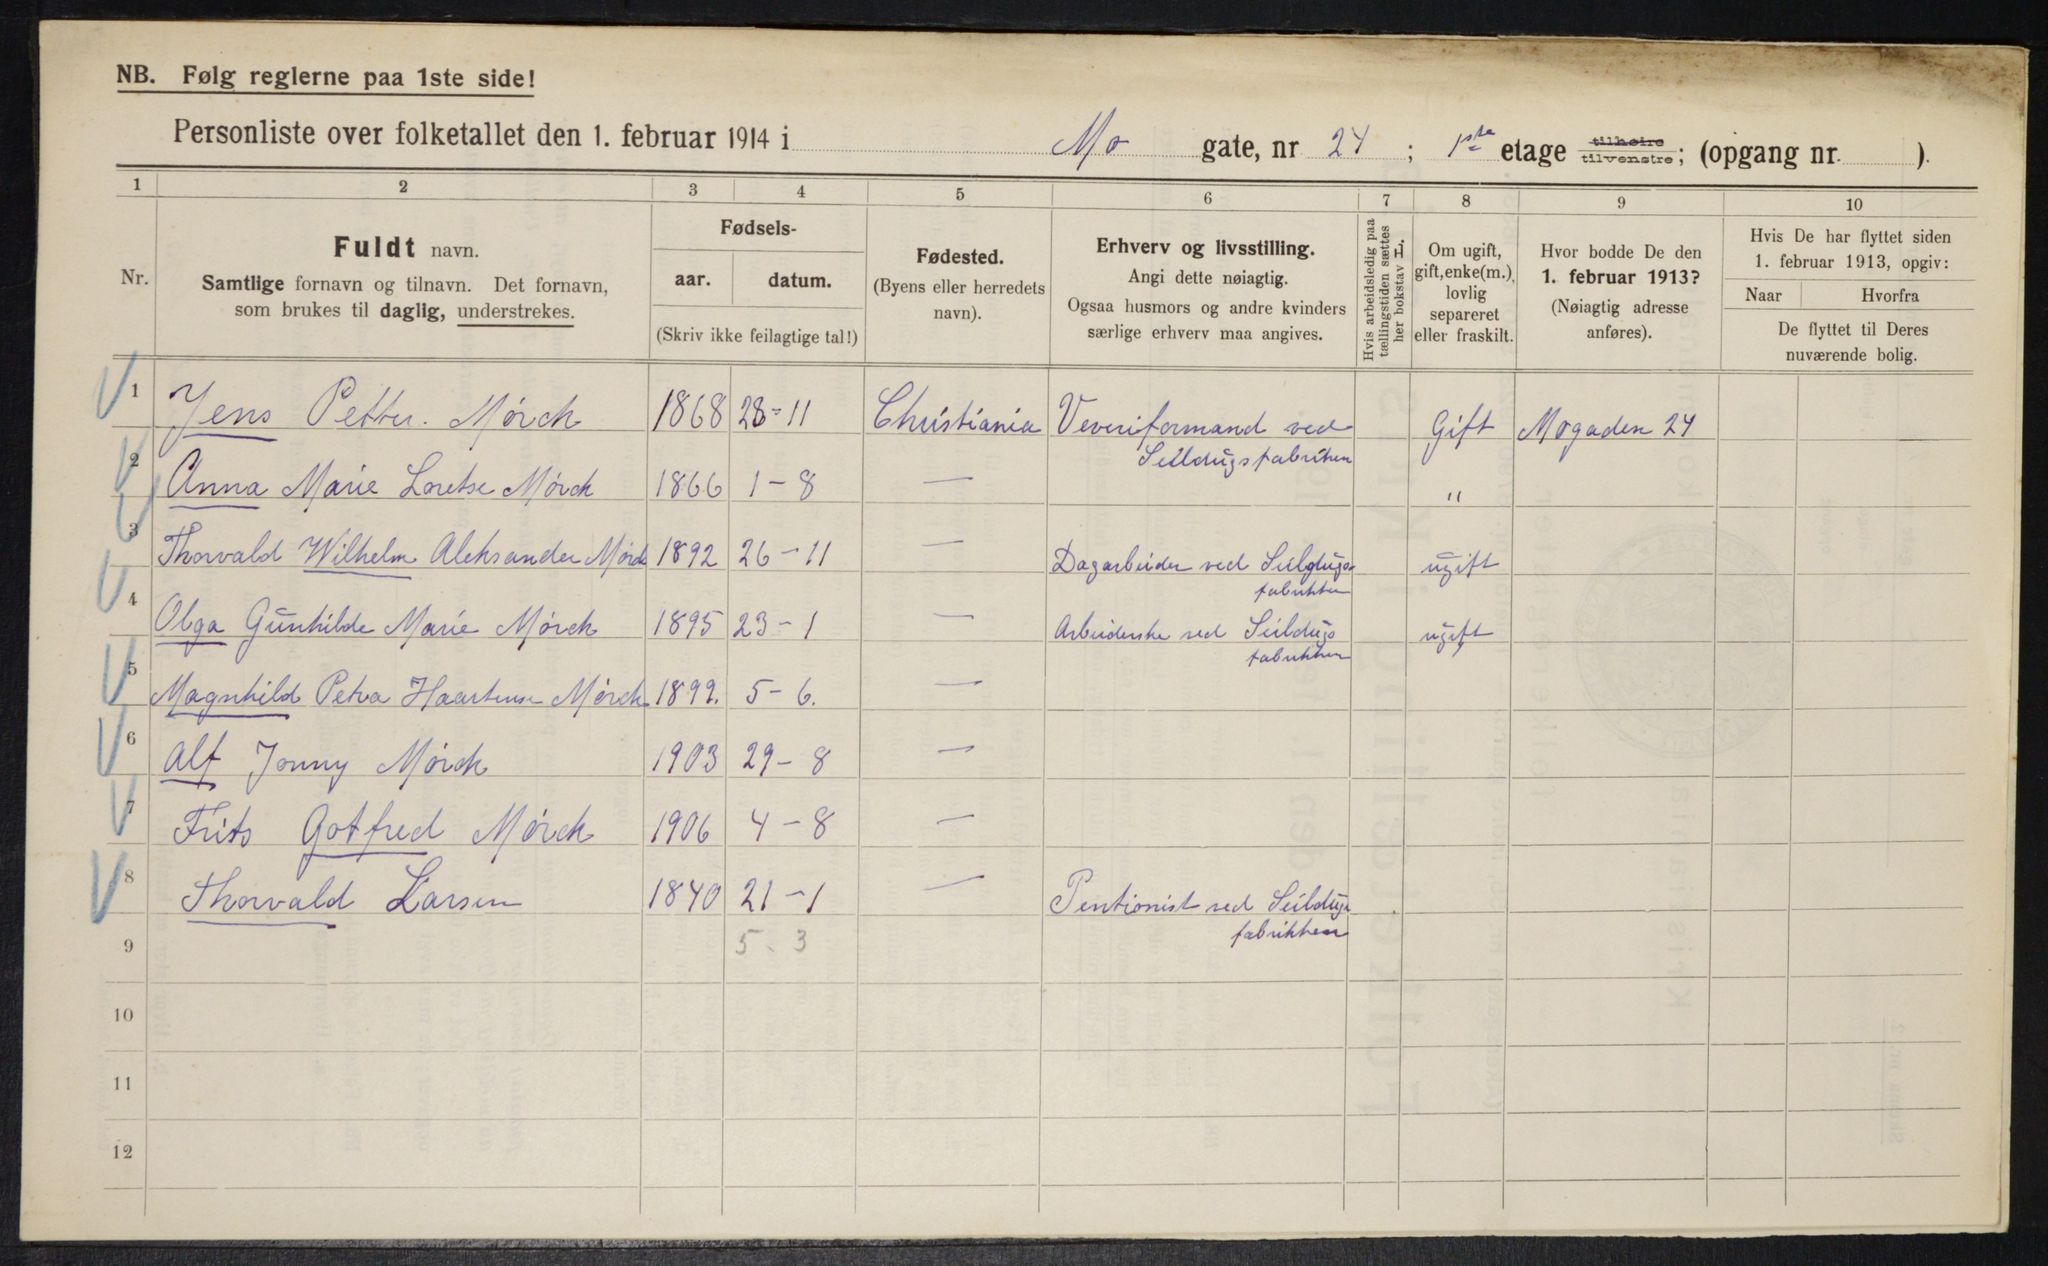 NB. Følg reglerne paa 1ste side!
Personliste over folketallet den 1. februar 1914 i Mo gate, nr 24 ; 1ste etage tilhøire tilvenstre; (opgang nr. ).
1 2 3 4 5 6 7 8 9 10
Nr.
Fuldt navn.
Samtlige fornavn og tilnavn. Det fornavn,
som brukes til daglig, understrekes.
Fødsels-
aar. datum.
(Skriv ikke feilagtige tal!)
Fødested.
(Byens eller herredets
navn).
Erhverv og livsstilling.
Angi dette nøiagtig.
Ogsaa husmors og andre kvinders
særlige erhverv maa angives.
Hvis arbeidsledig paa
tællingstiden sættes
her bokstav L.
Om ugift,
gift, enke(m.),
lovlig
separeret
eller fraskilt.
Hvor bodde De den
1. februar 1913?
(Nøiagtig adresse
anføres).
Hvis De har flyttet siden
1. februar 1913, opgiv:
Naar Hvorfra
De flyttet til Deres
nuværende bolig.
1 Jens Petter. Mörck 1868 28-11 Christiania Veveriformand ved Gift Mogaden 24
Seildugsfabriken
2 Anna Marie Loretse Mörck 1866 1-8 — "
3 Thorvald Wilhelm Aleksander Mörck 1892 26-11 — Dagarbeider ved Seildugs ugift
fabrikken
4 Olga Gunhilde Marie Mörck 1895 23-1 — Arbeiderske ved Seildugs ugift
fabrikken
5 Magnhild Petra Haartense Mörck 1899. 5-6. —
6 Alf Jonny Mörck 1903 29-8 —
7 Frits Gotfred Mörck 1906 4-8 —
8 Thorvald Larsen 1840 21-1 — Pentionist ved Seildugs
fabrikken
9 5.3
10
11
12